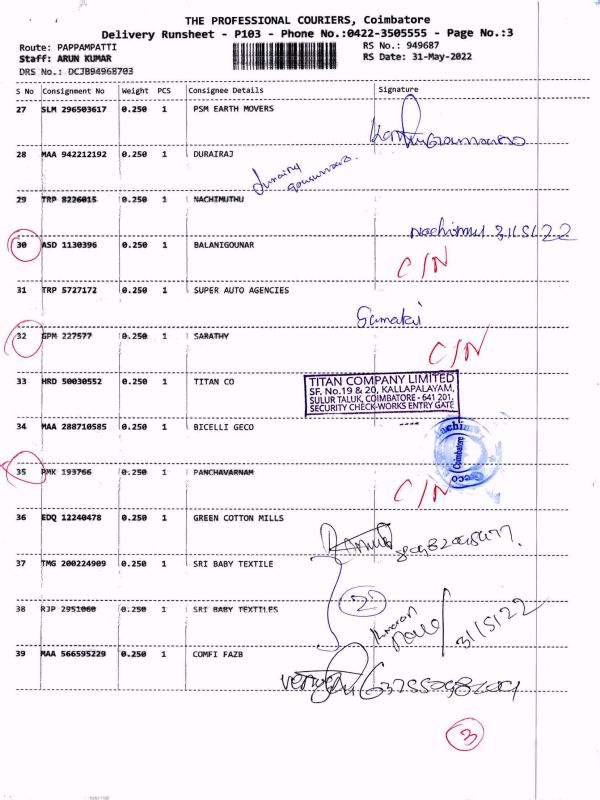 THE PROFESSIONAL COURIERS, Coimbatore
Delivery Runsheet - P103 - Phone No.:0422-3505555 - Page No.:3
Route: PAPPAMPATTI RS No.: 949687
Staff: ARUN KUMAR RS Date: 31-May-2022
DRS No.: DCJB94968703
S No Consignment No Weight PCS Consignee Details Signature
27 SLM 296503617 0.250 1 PSM EARTH MOVERS
28 MAA 942212192 0.250 1 DURAIRAJ
29 TRP 8226015 0.250 1 NACHIMUTHU
31/5/22
30 ASD 1130396 0.250 1 BALANIGOUNAR
C/N
31 TRP 5727172 0.250 1 SUPER AUTO AGENCIES
32 GPM 227577 0.250 1 SARATHY
C/N
33 HRD 50030552 0.250 1 TITAN CO
TITAN COMPANY LIMITED
SF. No.19 & 20, KALLAPALAYAM,
SULUR TALUK, COIMBATORE - 641 201.
SECURITY CHECK-WORKS ENTRY GATE
34 MAA 288710585 0.250 1 BICELLI GECO
Coimbatore
35 PMK 193766 0.250 1 PANCHAVARNAM
C/N
36 EDQ 12240478 0.250 1 GREEN COTTON MILLS
37 TMG 200224909 0.250 1 SRI BABY TEXTILE
2
38 RJP 2951060 0.250 1 SRI BABY TEXTILES
31/5/22
39 MAA 566595229 0.250 1 COMFI FAZB
3